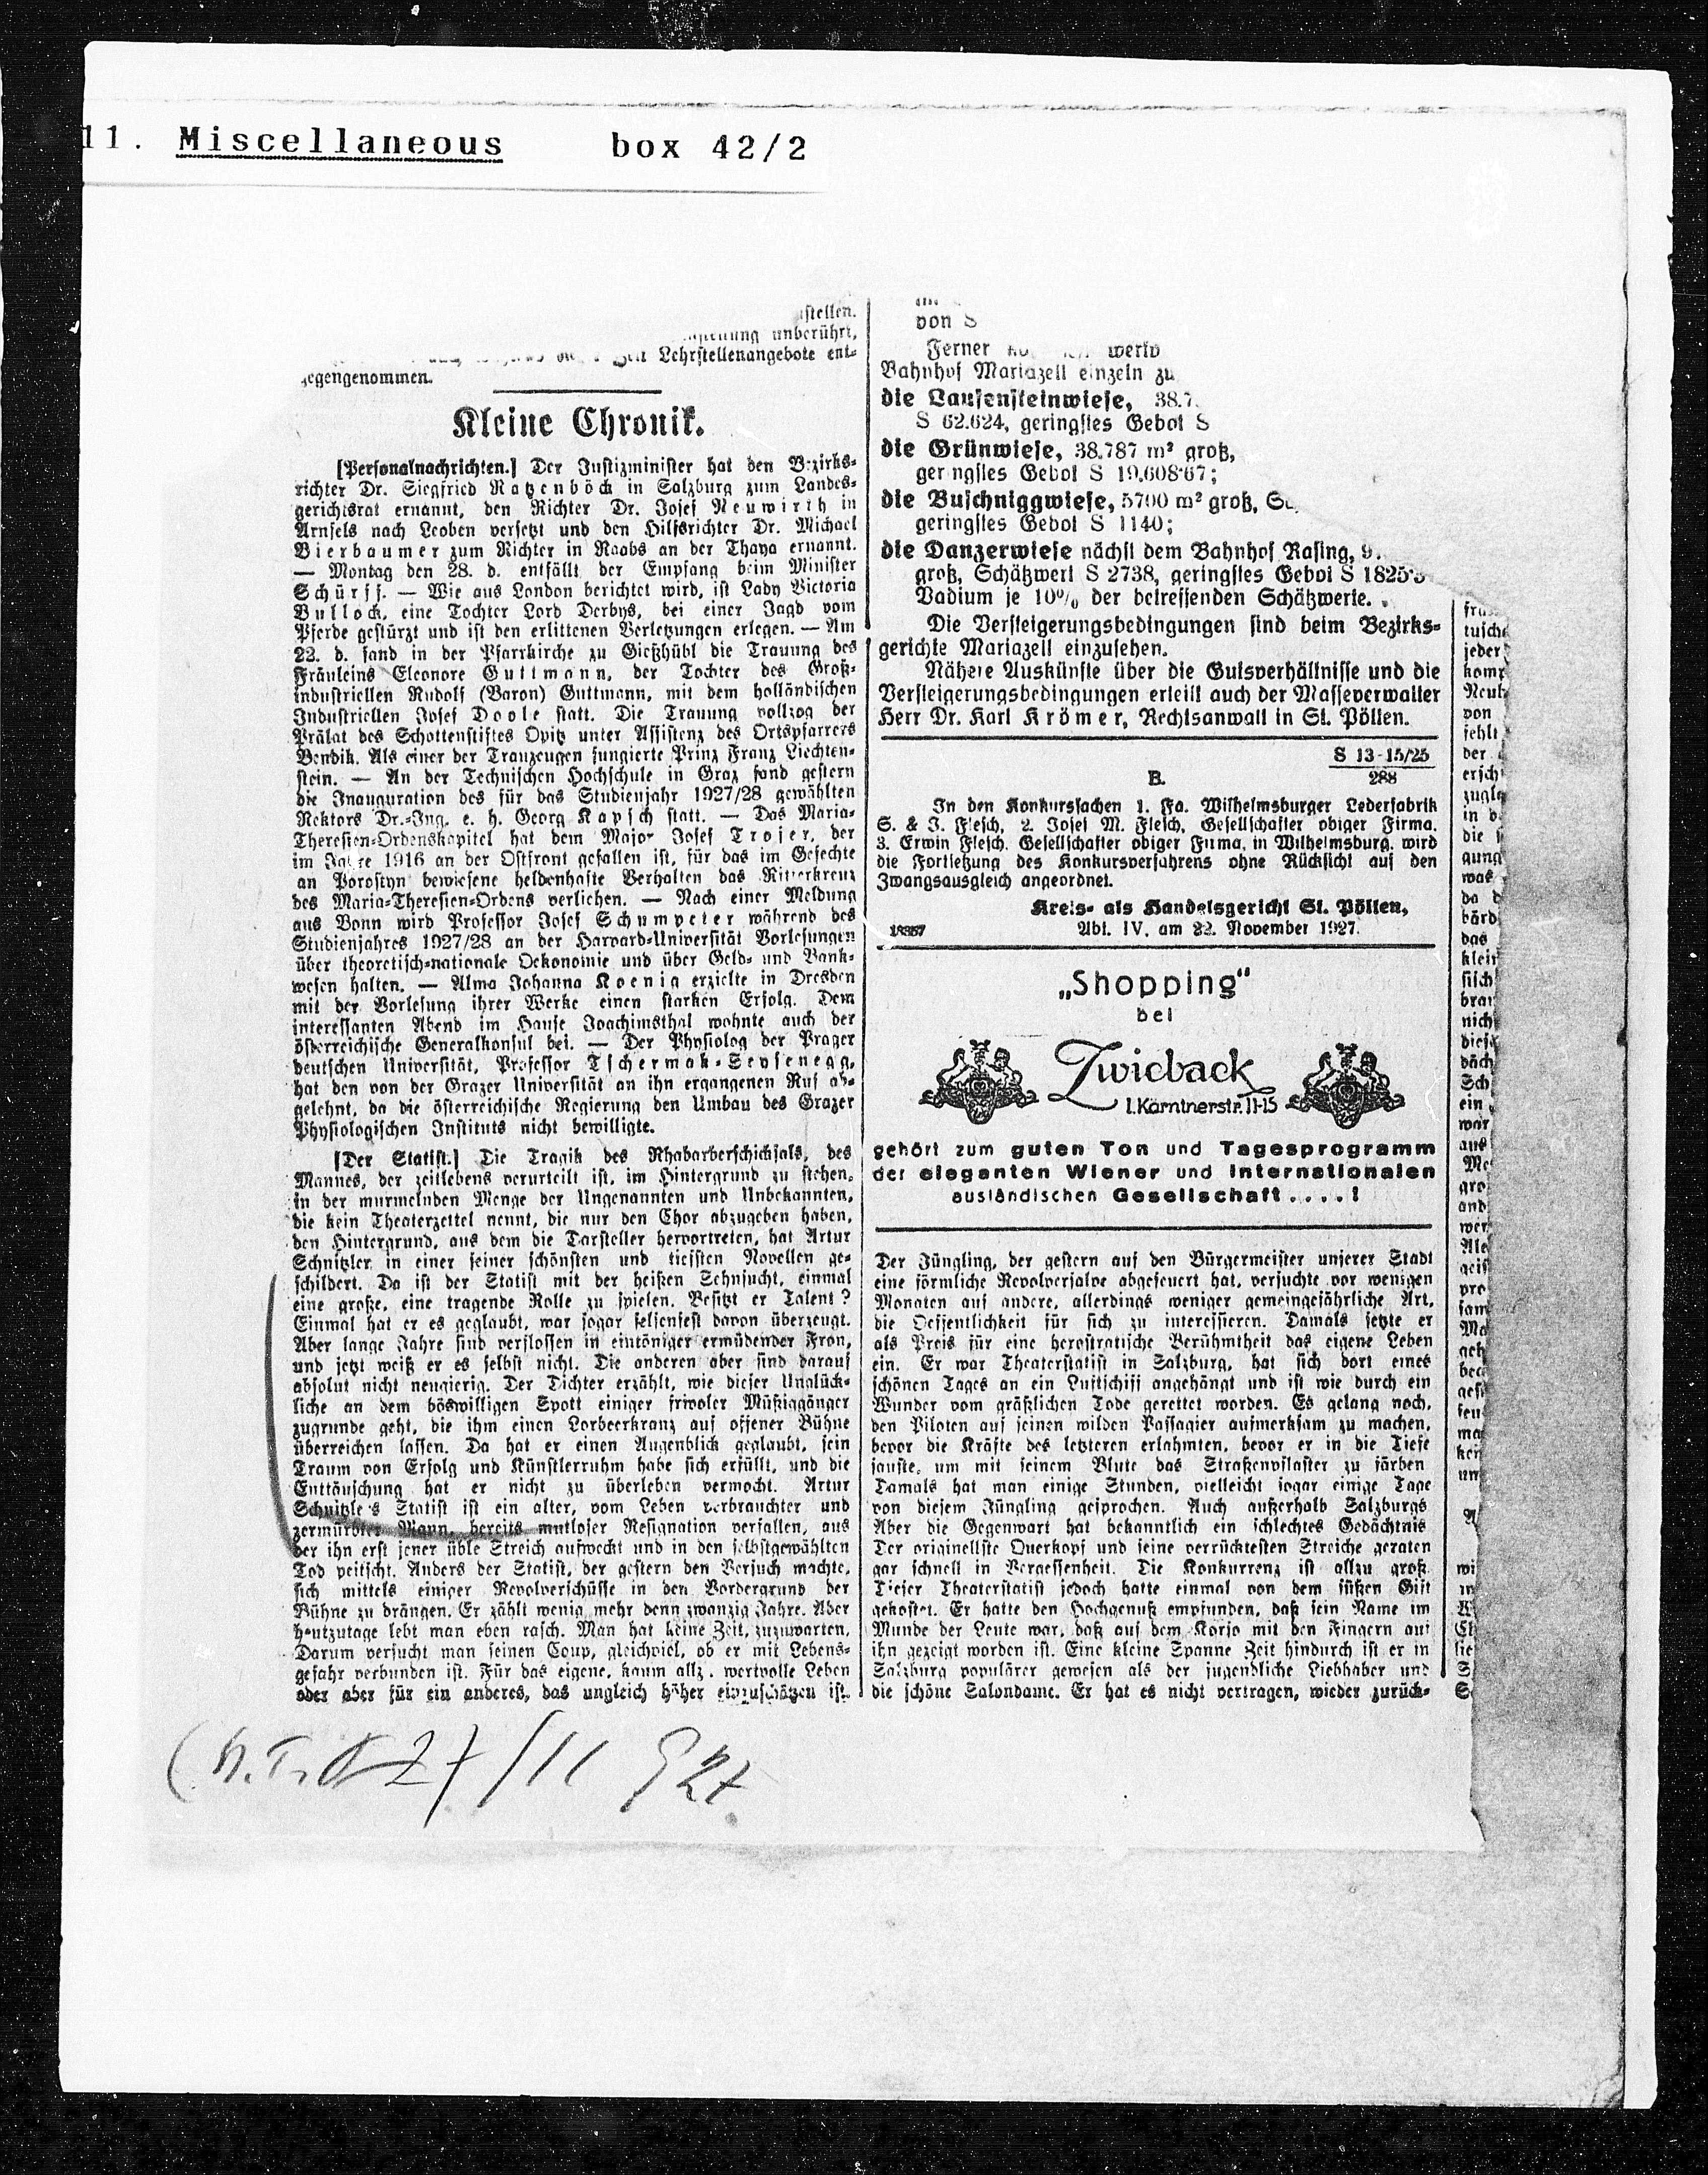 11. Miscellaneous box 42/2
stellen.
unberührt,
Lehrstellenangebote ent-
gegengenommen.
Kleine Chronik.
[Personalnachrichten.] Der Justizminister hat den Bezirks-
richter Dr. Siegfried Ratzenböck in Salzburg zum Landes-
gerichtsrat ernannt, den Richter Dr. Josef Neuwirth in
Arnfels nach Leoben versetzt und den Hilfsrichter Dr. Michael
Bierbaumer zum Richter in Raabs an der Thaya ernannt.
— Montag den 28. d. entfällt der Empfang beim Minister
Schürff. — Wie aus London berichtet wird, ist Lady Victoria
Bullock, eine Tochter Lord Derbys, bei einer Jagd vom
Pferde gestürzt und ist den erlittenen Verletzungen erlegen. — Am
22. d. fand in der Pfarrkirche zu Gießhübl die Trauung des
Fräuleins Eleonore Guttmann, der Tochter des Groß-
industriellen Rudolf (Baron) Guttmann, mit dem holländischen
Industriellen Josef Doole statt. Die Trauung vollzog der
Prälat des Schottenstiftes Opitz unter Assistenz des Ortspfarrers
Bendik. Als einer der Trauzeugen fungierte Prinz Franz Liechten-
stein. — An der Technischen Hochschule in Graz fand gestern
die Inauguration des für das Studienjahr 1927/28 gewählten
Rektors Dr.-Ing. e. h. Georg Kapsch statt. — Das Maria-
Theresien-Ordenskapitel hat dem Major Josef Trojer, der
im Jahre 1916 an der Ostfront gefallen ist, für das im Gefechte
an Porostyn bewiesene heldenhafte Verhalten das Ritterkreuz
des Maria-Theresien-Ordens verliehen. — Nach einer Meldung
aus Bonn wird Professor Josef Schumpeter während des
Studienjahres 1927/28 an der Harvard-Universität Vorlesungen
über theoretisch-nationale Oekonomie und über Geld- und Bank-
wesen halten. — Alma Johanna Koenig erzielte in Dresden
mit der Vorlesung ihrer Werke einen starken Erfolg. Dem
interessanten Abend im Hause Joachimsthal wohnte auch der
österreichische Generalkonsul bei. — Der Physiolog der Prager
deutschen Universität, Professor Tschermak-Seysenegg,
hat den von der Grazer Universität an ihn ergangenen Ruf ab-
gelehnt, da die österreichische Regierung den Umbau des Grazer
Physiologischen Instituts nicht bewilligte.
[Der Statist.] Die Tragik des Rhabarberschicksals, des
Mannes, der zeitlebens verurteilt ist, im Hintergrund zu stehen,
in der murmelnden Menge der Ungenannten und Unbekannten,
die kein Theaterzettel nennt, die nur den Chor abzugeben haben,
den Hintergrund, aus dem die Darsteller hervortreten, hat Artur
Schnitzler in einer seiner schönsten und tiefsten Novellen ge-
schildert. Da ist der Statist mit der heißen Sehnsucht, einmal
eine große, eine tragende Rolle zu spielen. Besitzt er Talent?
Einmal hat er es geglaubt, war sogar felsenfest davon überzeugt.
Aber lange Jahre sind verflossen in eintöniger ermüdender Fron,
und jetzt weiß er es selbst nicht. Die anderen aber sind darauf
absolut nicht neugierig. Der Dichter erzählt, wie dieser Unglück-
liche an dem böswilligen Spott einiger frivoler Müßiggänger
zugrunde geht, die ihm einen Lorbeerkranz auf offener Bühne
überreichen lassen. Da hat er einen Augenblick geglaubt, sein
Traum von Erfolg und Künstlerruhm habe sich erfüllt, und die
Enttäuschung hat er nicht zu überleben vermocht. Artur
Schnitzlers Statist ist ein alter, vom Leben verbrauchter und
zermürbter Mann, bereits mutloser Resignation verfallen, aus
der ihn erst jener üble Streich aufweckt und in den selbstgewählten
Tod peitscht. Anders der Statist, der gestern den Versuch machte,
sich mittels einiger Revolverschüsse in den Vordergrund der
Bühne zu drängen. Er zählt wenig mehr denn zwanzig Jahre. Aber
heutzutage lebt man eben rasch. Man hat keine Zeit, zuzuwarten.
Darum versucht man seinen Coup, gleichviel, ob er mit Lebens-
gefahr verbunden ist. Für das eigene, kaum allzu wertvolle Leben
oder aber für ein anderes, das ungleich höher einzuschätzen ist.
von S
Ferner
Bahnhof Mariazell einzeln zu
die Lausensteinwiese, 38.7
S 62.624, geringstes Gebot S
die Grünwiese, 38.787 m² groß,
geringstes Gebot S 19.608·67;
die Buschniggwiese, 5700 m² groß,
geringstes Gebot S 1140;
die Danzerwiese nächst dem Bahnhof Rasing, 9.
groß, Schätzwert S 2738, geringstes Gebot S 1825·3
Vadium je 10% der betreffenden Schätzwerte.
Die Versteigerungsbedingungen sind beim Bezirks-
gerichte Mariazell einzusehen.
Nähere Auskünfte über die Gutsverhältnisse und die
Versteigerungsbedingungen erteilt auch der Masseverwalter
Herr Dr. Karl Krömer, Rechtsanwalt in St. Pölten.
S 13-15/25
288
B.
In den Konkurssachen 1. Fa. Wilhelmsburger Lederfabrik
S. & J. Flesch, 2. Josef M. Flesch, Gesellschafter obiger Firma.
3. Erwin Flesch, Gesellschafter obiger Firma, in Wilhelmsburg, wird
die Fortsetzung des Konkursverfahrens ohne Rücksicht auf den
Zwangsausgleich angeordnet.
Kreis- als Handelsgericht St. Pölten,
18357 Abt. IV, am 22. November 1927.
„Shopping“
bei
Zwieback
I. Kärntnerstr. 11-15
gehört zum guten Ton und Tagesprogramm
der eleganten Wiener und internationalen
ausländischen Gesellschaft . . . . !
Der Jüngling, der gestern auf den Bürgermeister unserer Stadt
eine förmliche Revolversalve abgefeuert hat, versuchte vor wenigen
Monaten auf andere, allerdings weniger gemeingefährliche Art,
die Oeffentlichkeit für sich zu interessieren. Damals setzte er
als Preis für eine herostratische Berühmtheit das eigene Leben
ein. Er war Theaterstatist in Salzburg, hat sich dort eines
schönen Tages an ein Luftschiff angehängt und ist wie durch ein
Wunder vom gräßlichen Tode gerettet worden. Es gelang noch,
den Piloten auf seinen wilden Passagier aufmerksam zu machen,
bevor die Kräfte des letzteren erlahmten, bevor er in die Tiefe
sauste, um mit seinem Blute das Straßenpflaster zu färben
Damals hat man einige Stunden, vielleicht sogar einige Tage
von diesem Jüngling gesprochen. Auch außerhalb Salzburgs
Aber die Gegenwart hat bekanntlich ein schlechtes Gedächtnis
Der originellste Querkopf und seine verrücktesten Streiche geraten
gar schnell in Vergessenheit. Die Konkurrenz ist allzu groß.
Dieser Theaterstatist jedoch hatte einmal von dem süßen Gift
gekostet. Er hatte den Hochgenuß empfunden, daß sein Name im
Munde der Leute war, daß auf dem Korso mit den Fingern auf
ihn gezeigt worden ist. Eine kleine Spanne Zeit hindurch ist er in
Salzburg populärer gewesen als der jugendliche Liebhaber und
die schöne Salondame. Er hat es nicht vertragen, wieder zurück-
jeder
von
fehlt
der
was
das
nich
ein
war
aus
27/11 927.